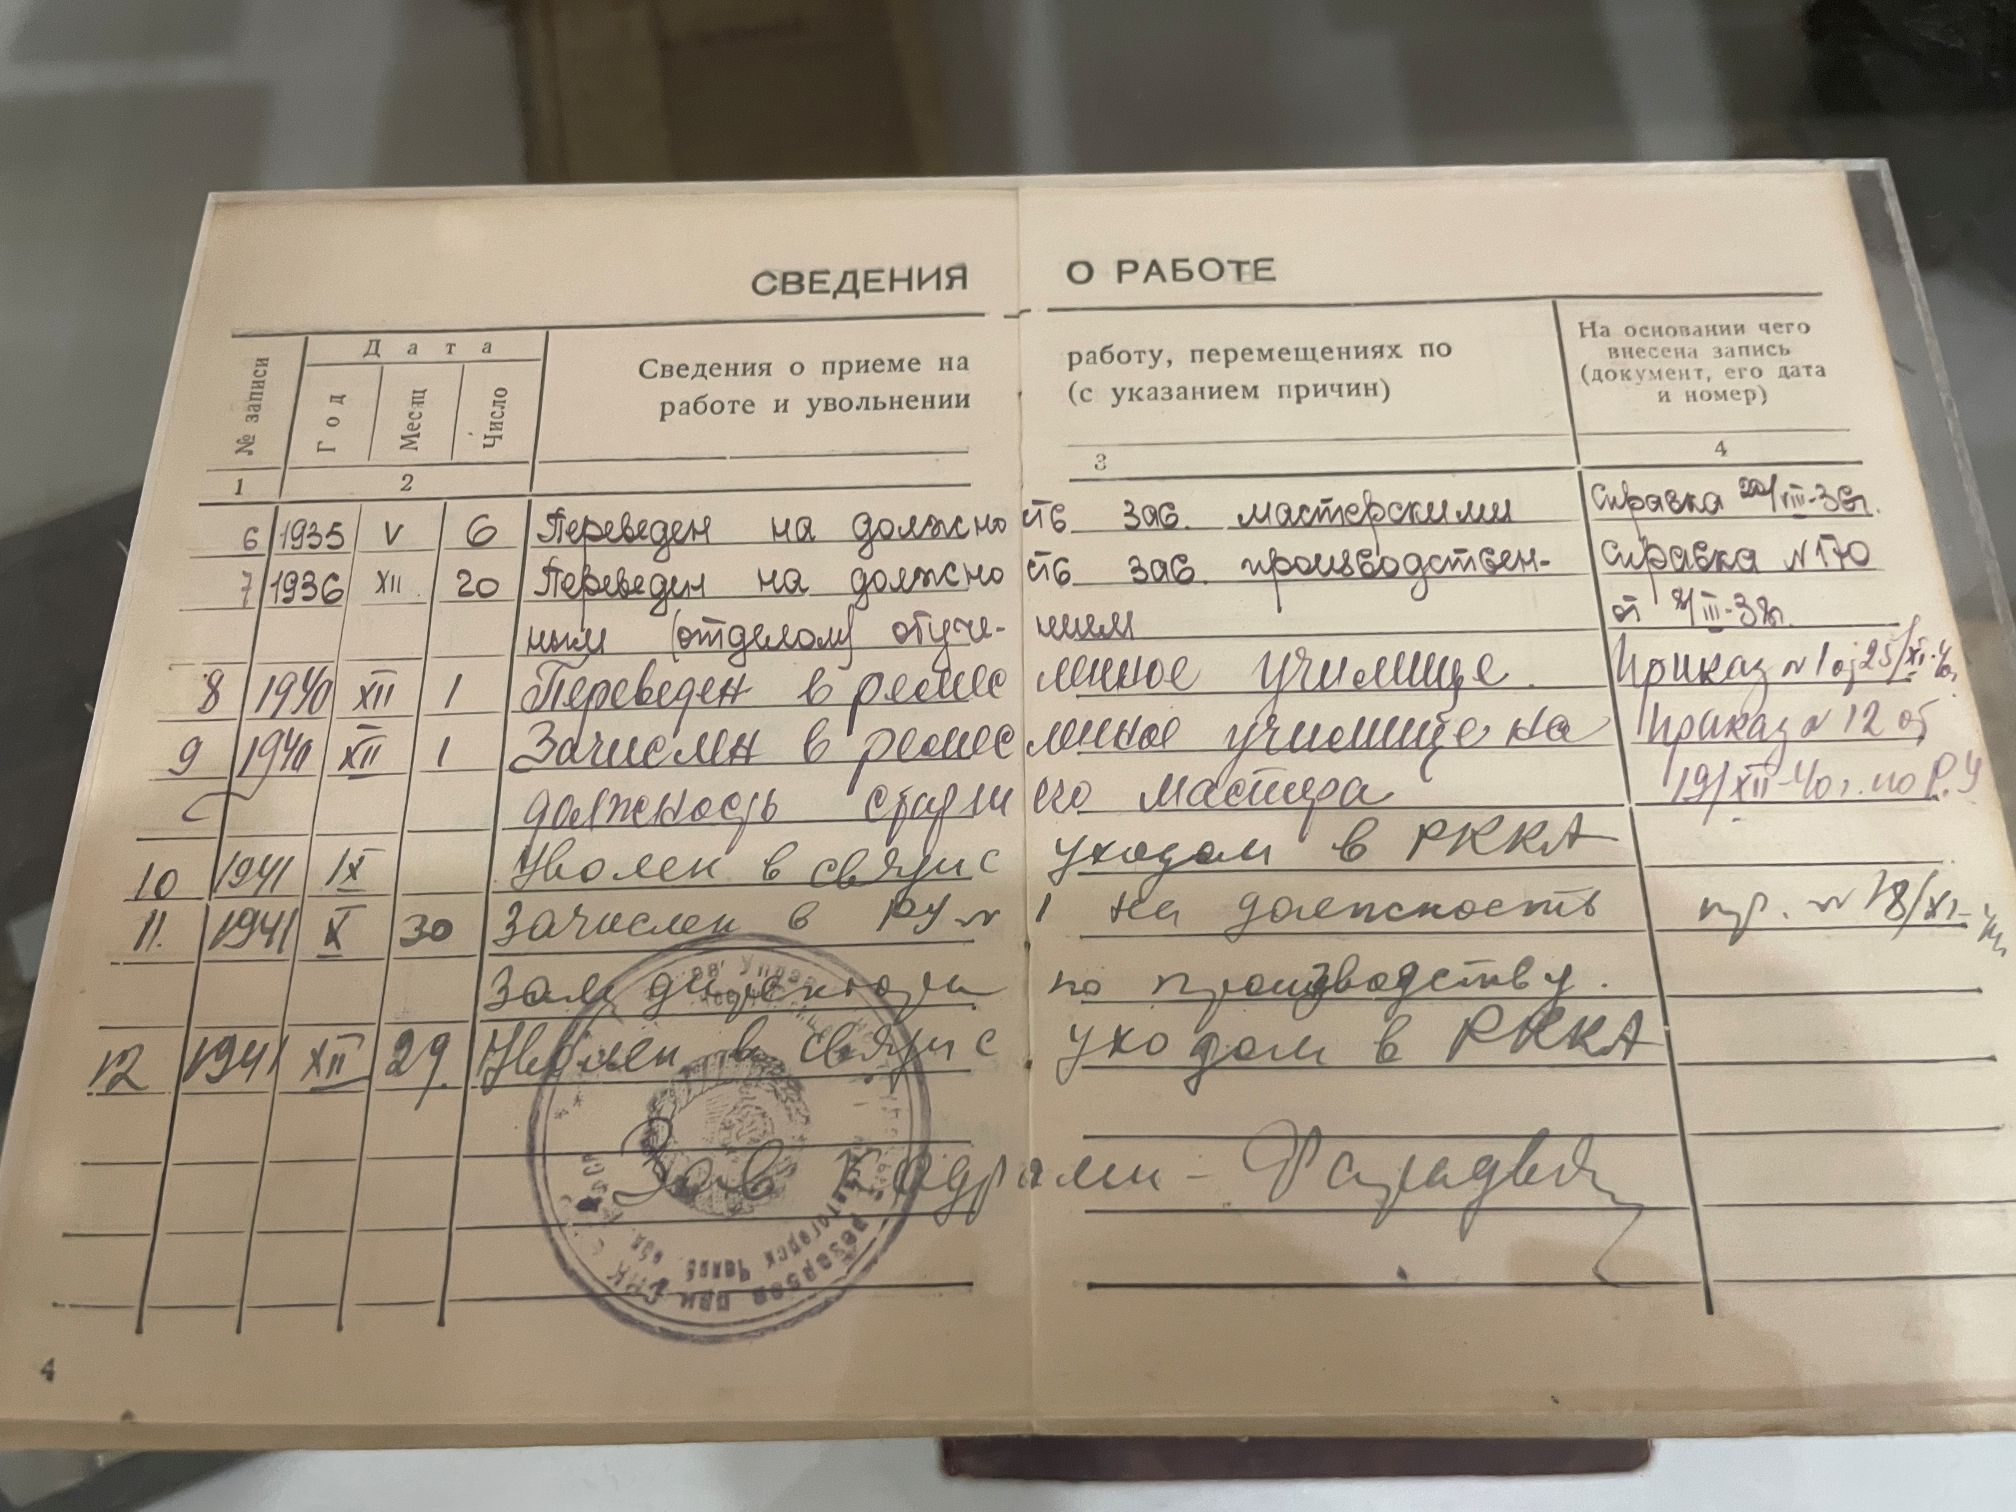 СВЕДЕНИЯ О РАБОТЕ
№ записи
Дата
Год
Месяц
Число
Сведения о приеме на работу, перемещениях по
работе и увольнении (с указанием причин)
На основании чего
внесена запись
(документ, его дата
и номер)
1 2 3 4
6 1935 V 6 Переведен на должность зав. мастерскими Справка 20/VIII-38г.
7 1936 XII 20 Переведен на должность зав. производствен- Справка N170
ным (отделом) обучением от 8/III-38г.
8 1940 XII 1 Переведен в ремесленное училище. Приказ N1 от 25/XI-40г.
9 1940 XII 1 Зачислен в ремесленное училище на Приказ N 12 от
должность старшего мастера 19/XII-40г. по Р.У
10 1941 IX Уволен в связи с уходом в РККА
11. 1941 X 30 Зачислен в РУ N 1 на должность пр. N
Зам директора по производству.
12 1941 XII 29. Уволен в связи с уходом в РККА
Зав Кадрами -
4